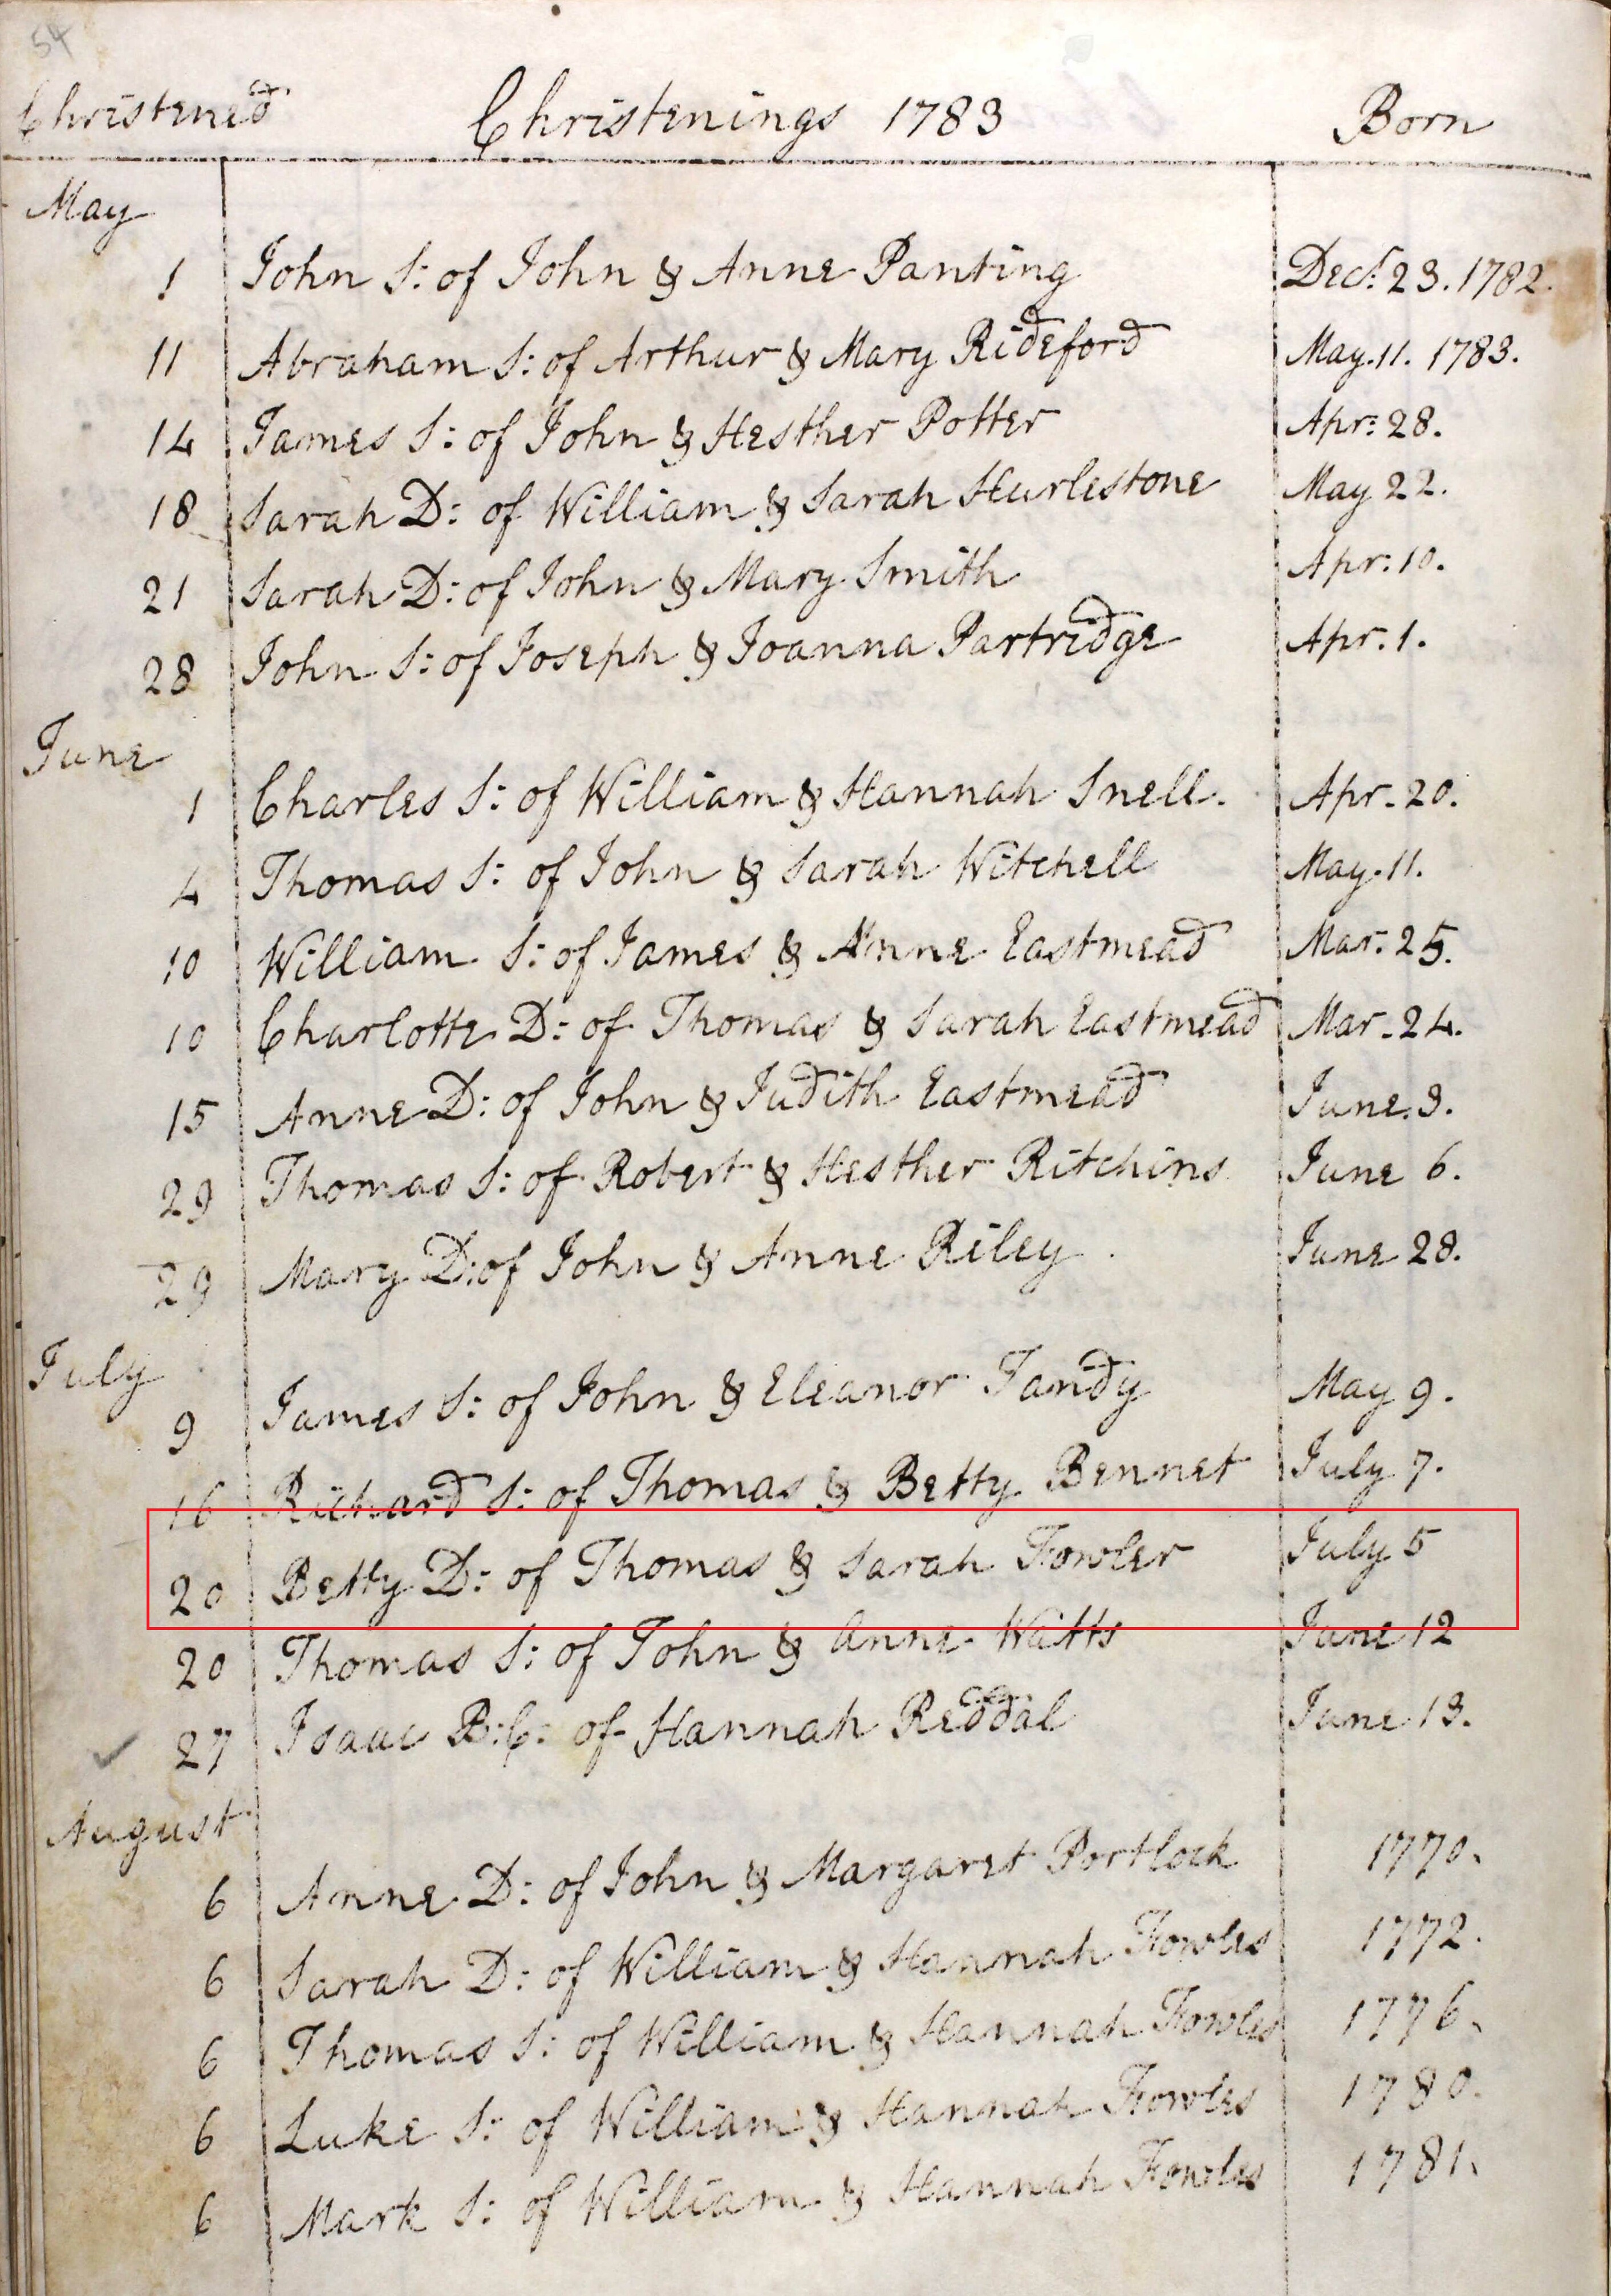 54
Christened Christenings 1783 Born
May
1 John S: of John & Anne Panting Decr: 23. 1782.
11 Abraham S: of Arthur & Mary Rideford May. 11. 1783.
14 James S: of John & Hesther Potter Apr: 28.
18 Sarah D: of William & Sarah Hurlestone May 22.
21 Sarah D: of John & Mary Smith Apr: 10.
28 John S: of Joseph & Joanna Partridge Apr. 1.
June
1 Charles S: of William & Hannah Snell. Apr. 20.
4 Thomas S: of John & Sarah Witchell May. 11.
10 William S: of James & Anne Eastmead Mar: 25.
10 Charlotte D: of Thomas & Sarah Eastmead Mar. 24.
15 Anne D: of John & Judith Eastmead June. 3.
29 Thomas S: of Robert & Hesther Ritchins June 6.
29 Mary D: of John & Anne Riley. June 28.
July
9 James S: of John & Eleanor Tandy May 9.
16 Richard S: of Thomas & Betty Bennet July 7.
20 Betty D: of Thomas & Sarah Fowler July 5
20 Thomas S: of John & Anne Watts June 12
27 Isaac B:C: of Hannah Reddal June 13.
August
6 Anne D: of John & Margaret Portlock 1770.
6 Sarah D: of William & Hannah Fowles 1772.
6 Thomas S: of William & Hannah Fowles 1776.
6 Luke S: of William & Hannah Fowles 1780.
6 Mark S: of William & Hannah Fowles 1781.